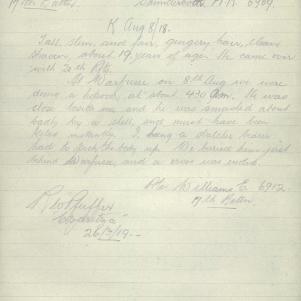 17th Battn.
K Aug 8/18.
Tall, slim, and fair, gingery hair, clean
shaven, about 19 years of age. He came over
with 20th Rfts.
At Warfusee on 8th Aug we were
at about 430 am. He was
close beside me and he was smashed about
badly by a shell, and must have been
killed instantly. I being a stretcher bearer
had to pick the body up. We buried him just
behind Warfusee, and a cross was erected.
Pte Williams E. 6912
17th Battn.
26/7/19